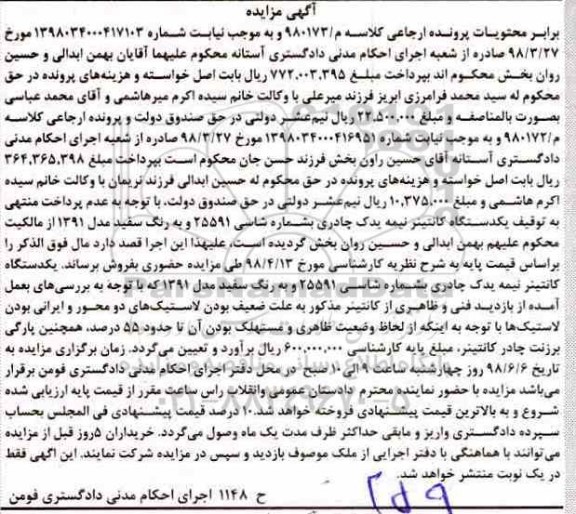 آگهی مزایده
برابر محتویات پرونده ارجاعی کلاسه م/۹۸۰۱۷۳ و به موجب نیابت شماره ۱۳۹۸۰۳۴۰۰۰۴۱۷۱۰۳ مورخ
۹۸/۳/۲۷ صادره از شعبه اجرای احکام مدنی دادگستری آستانه محکوم علیهما آقایان بهمن ابدالی و حسین
روان بخش محکوم اند بپرداخت مبلغ ۷۷۲,۰۰۳,۳۹۵ ریال بابت اصل خواسته و هزینه‌های پرونده در حق
محکوم له سید محمد فرامرزی ابریز فرزند میرعلی با وکالت خانم سیده اکرم میرهاشمی و آقای محمد عباسی
بصورت بالمناصفه و مبلغ ۲۲,۵۰۰,۰۰۰ ریال نیم‌عشر دولتی در حق صندوق دولت و پرونده ارجاعی کلاسه
م/۹۸۰۱۷۲ و به موجب نیابت شماره ۱۳۹۸۰۳۴۰۰۰۴۱۶۹۵۱ مورخ ۹۸/۳/۲۷ صادره از شعبه اجرای احکام مدنی
دادگستری آستانه آقای حسین راون بخش فرزند حسن جان محکوم است بپرداخت مبلغ ۳۶۴,۳۶۵,۳۹۸
ریال بابت اصل خواسته و هزینه‌های پرونده در حق محکوم له حسین ابدالی فرزند نریمان با وکالت خانم سیده
اکرم هاشمی و مبلغ ۱۰,۳۷۵,۰۰۰ ریال نیم‌عشر دولتی در حق صندوق دولت، با توجه به عدم پرداخت منتهی
به توقیف یکدستگاه کانتینر نیمه یدک چادری بشماره شاسی ۲۵۵۹۱ و به رنگ سفید مدل ۱۳۹۱ از مالکیت
محکوم علیهم بهمن ابدالی و حسین روان بخش گردیده است، علیهذا این اجرا قصد دارد مال فوق الذکر را
براساس قیمت پایه به شرح نظریه کارشناسی مورخ ۹۸/۴/۱۳ طی مزایده حضوری بفروش برساند. یکدستگاه
کانتینر نیمه یدک چادری بشماره شاسی ۲۵۵۹۱ و به رنگ سفید مدل ۱۳۹۱ که با توجه به بررسی‌های بعمل
آمده از بازدید فنی و ظاهری از کانتینر مذکور به علت ضعیف بودن لاستیک‌های دو محور و ایرانی بودن
لاستیک‌ها با توجه به اینکه از لحاظ وضعیت ظاهری و مستهلک بودن آن تا حدود ۵۵ درصد، همچنین پارگی
برزنت چادر کانتینر، مبلغ پایه کارشناسی ۶۰۰,۰۰۰,۰۰۰ ریال برآورد و تعیین می‌گردد. زمان برگزاری مزایده به
تاریخ ۹۸/۶/۶ روز چهارشنبه ساعت ۹ الی ۱۰ صبح در محل دفتر اجرای احکام مدنی دادگستری فومن برقرار
می‌باشد مزایده با حضور نماینده محترم دادستان عمومی وانقلاب راس ساعت مقرر از قیمت پایه ارزیابی شده
شروع و به بالاترین قیمت پیشنهادی فروخته خواهد شد. ۱۰ درصد قیمت پیشنهادی فی المجلس بحساب
سپرده دادگستری واریز و مابقی حداکثر ظرف مدت یک ماه وصول می‌گردد. خریداران ۵روز قبل از مزایده
می‌توانند با هماهنگی با دفتر اجرایی از ملک موصوف بازدید و سپس در مزایده شرکت نمایند. این آگهی فقط
در یک نوبت منتشر خواهد شد.
ح ۱۱۴۸ اجرای احکام مدنی دادگستری فومن
ParsNamadData
۰۲۱-۸۸۳۴۹۶۷۰-۵